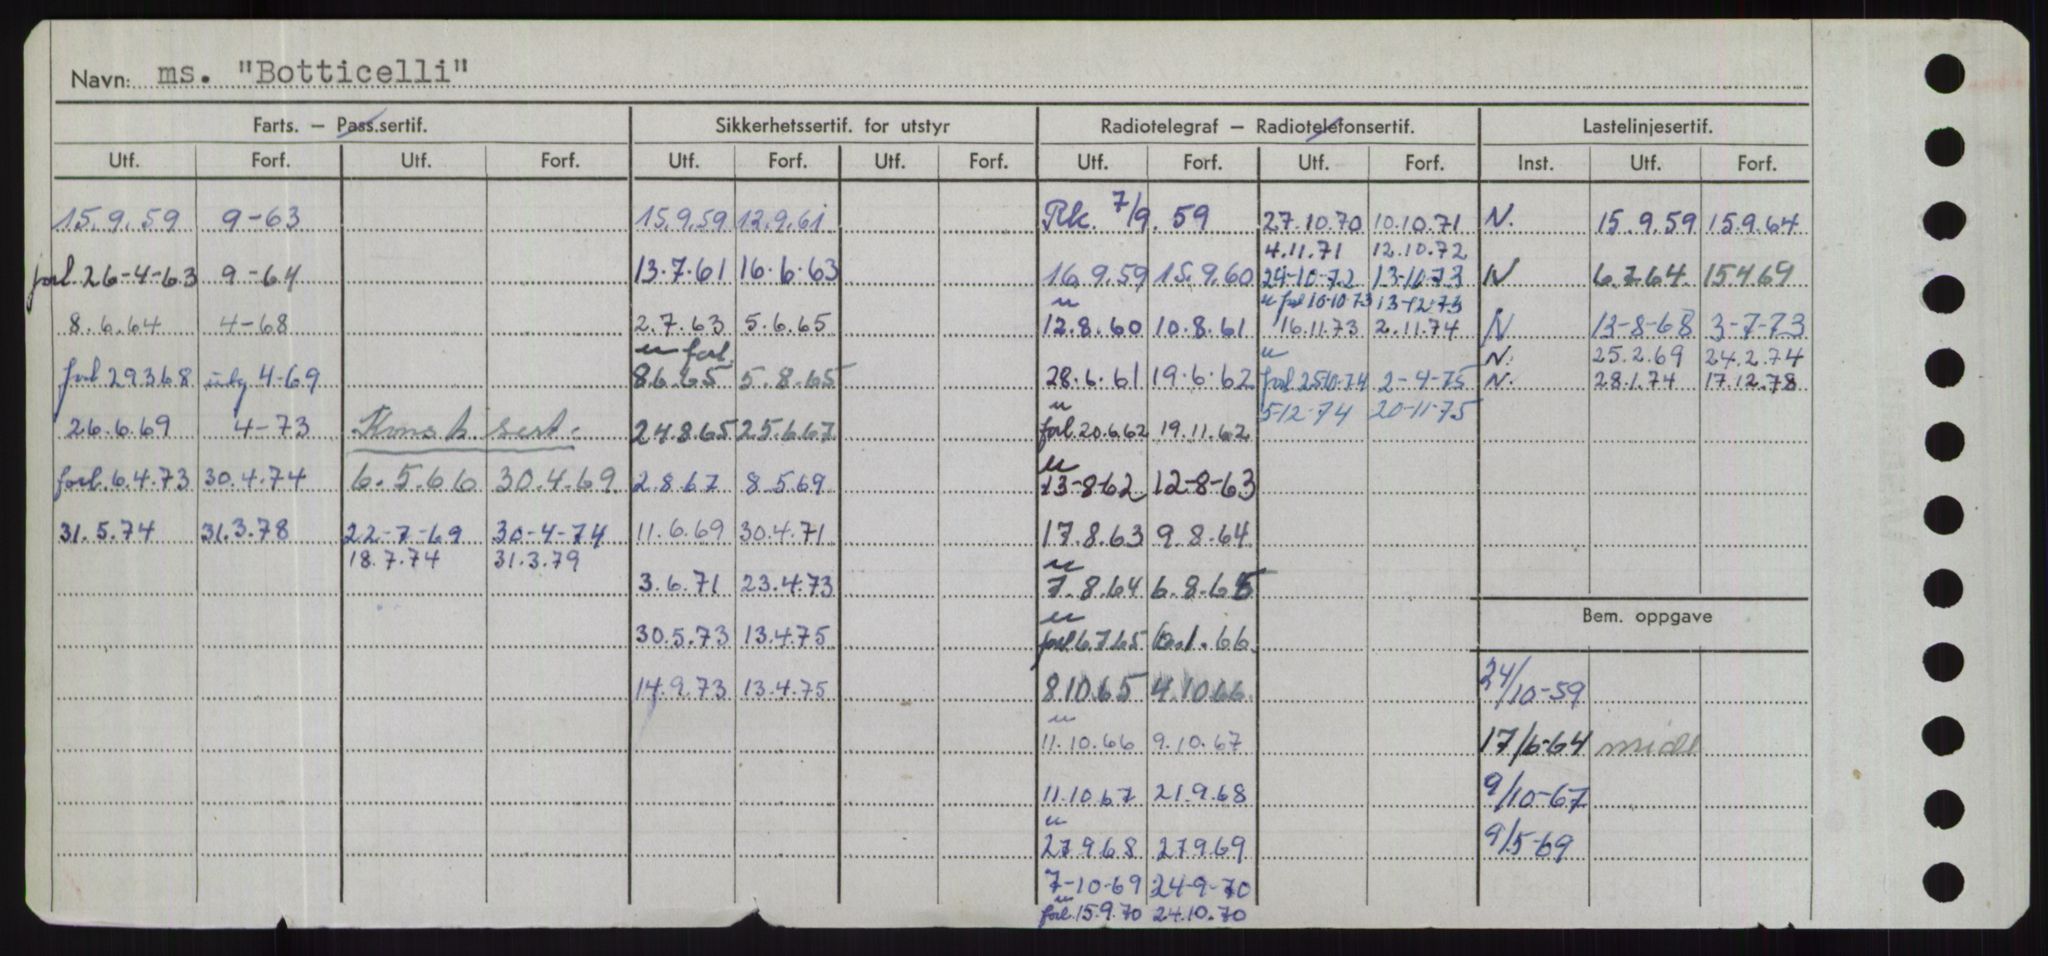 Navn: ms. "Botticelli"
Farts. — Pass.sertif. Sikkerhetssertif. for utstyr Radiotelegraf — Radiotelefonsertif. Lastelinjesertif.
Utf. Forf. Utf. Forf. Utf. Forf. Utf. Forf. Utf. Forf. Utf. Forf. Inst. Utf. Forf.
15.9.59 9-63 15.9.59 12.9.61 Rk. 7/9. 59 27.10.70 10.10.71 N. 15.9.59 15.9.64
4.11.71 12.10.72
forl. 26-4-63 9-64 13.7.61 16.6.63 16.9.59 15.9.60 24-10-72 13-10-73 N 6.7.64. 15.4.69
u u forl 10-10-73 13-12-73
8.6.64 4-68 2.7.63 5.6.65 12.8.60 10.8.61 16.11.73 2.11.74 N 13-8-68 3-7-73
u forl. u N. 25.2.69 24.2.74
forl 29.3.68 4-69 8.6.65 5.8.65 28.6.61 19.6.62 forl 25.10.74 2-4-75 N. 28.1.74 17.12.78
u 5-12-74 20-11-75
26.6.69 4-73 sert. 24.8.65 25.6.67 forl. 20.6.62 19.11.62
u
forl. 6.4.73 30.4.74 6.5.66 30.4.69 2.8.67 8.5.69 13-8-62 12-8-63
31.5.74 31.3.78 22-7-69 30-4-74 11.6.69 30.4.71 17.8.63 9.8.64
18.7.74 31.3.79 u
3.6.71 23.4.73 7.8.64 6.8.65
u Bem. oppgave
30.5.73 13.4.75 forl. 6.7.65 6.1.66
14.9.73 13.4.75 8.10.65 4.10.66 24/10-59
u
11.10.66 9.10.67 17/6-64
11.10.67 21.9.68 9/10-67
u
27.9.68 27.9.69 9/5-69
7-10-69 24-9-70
u
forl. 15.9.70 24.10.70